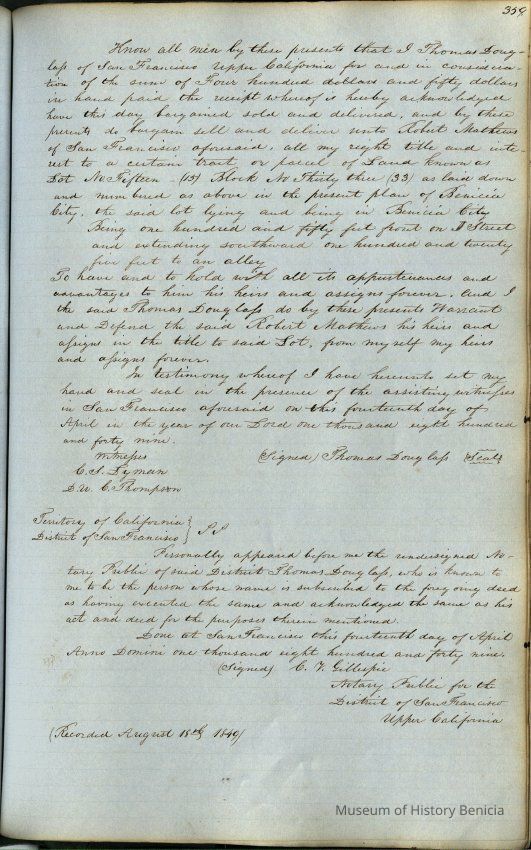 359
Know all men by these presents that I Thomas Doug-
lass of San Francisco Upper California for and in considera
tion of the sum of Four hundred dollars and fifty dollars
in hand paid the receipt whereof is hereby acknowledged
have this day bargained sold and delivered, and by these
presents do bargain sell and deliver unto Robert Mathews
of San Francisco aforesaid, all my right title and inte-
rest to a certain tract or parcel of Land known as
Lot No Fifteen (15) Block No Thirty three (33) as laid down
and numbered as above in the present plan of Benicia
City, the said lot lying and being in Benicia City
Being one hundred and fifty feet front on Street
and extending southward one hundred and twenty
five feet to an alley
To have and to hold with all its appurtenances and
advantages to him his heirs and assigns forever. And I
the said Thomas Douglass do by these presents Warrant
and Defend the said Robert Mathews his heirs and
assigns in the title to said Lot, from myself my heirs
and assigns forever.
In testimony whereof I have hereunto set my
hand and seal in the presence of the assisting witnesses
in San Francisco aforesaid on this fourteenth day of
April in the year of our Lord one thousand eight hundred
and forty nine.
Witnesses (Signed) Thomas Douglass (Seal)
C. S. Lyman
D. W. C. Thompson
Territory of California }
District of San Francisco } SS
Personally appeared before me the undersigned No-
tary Public of said District Thomas Douglass, who is known to
me to be the person whose name is subscribed to the foregoing deed
as having executed the same and acknowledged the same as his
act and deed for the purposes therein mentioned.
Done at San Francisco this fourteenth day of April
Anno Domini one thousand eight hundred and forty nine.
(Signed) C. V. Gillespie
Notary Public for the
District of San Francisco
Upper California
(Recorded August 18th 1849)
Museum of History Benicia